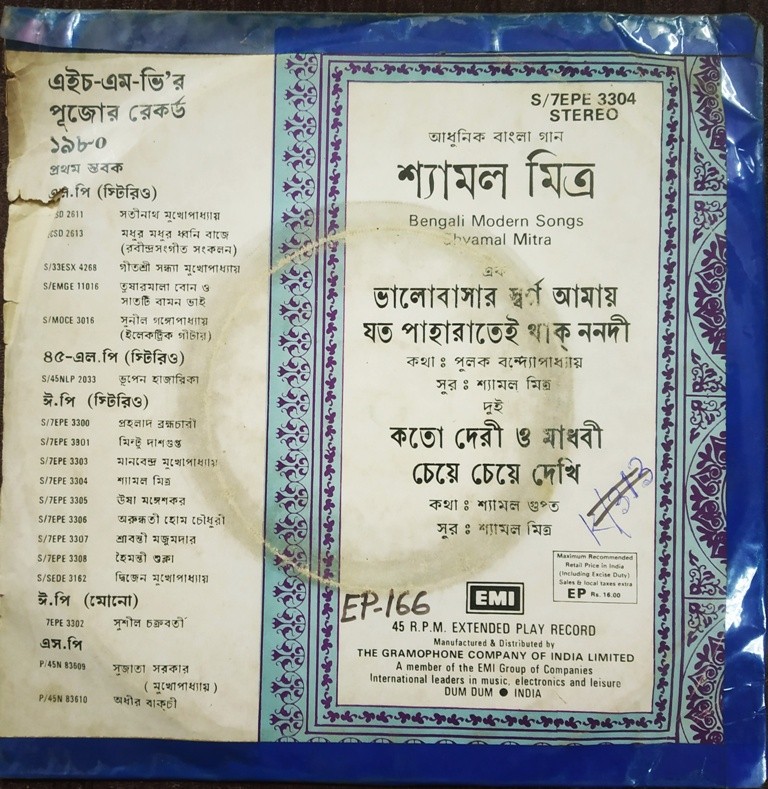 এইচ-এম-ভি'র
পূজোর রেকর্ড
১৯৮০
প্রথম স্তবক
এল.পি (স্টিরিও)
SD 2611 সতীনাথ মুখোপাধ্যায়
CSD 2613 মধুর মধুর ধ্বনি বাজে
(রবীন্দ্রসংগীত সংকলন)
S/33ESX 4268 গীতশ্রী সন্ধ্যা মুখোপাধ্যায়
S/EMGE 11016 তুষারমালা বোন ও
সাতটি বামন ভাই
S/MOCE 3016 সুনীল গঙ্গোপাধ্যায়
(ইলেকট্রিক গীটার)
৪৫-এল.পি (স্টিরিও)
S/45NLP 2033 ভূপেন হাজারিকা
ঈ.পি (স্টিরিও)
S/7EPE 3300 প্রহলাদ ব্রহ্মচারী
S/7EPE 3301 মিন্টু দাশগুপ্ত
S/7EPE 3303 মানবেন্দ্র মুখোপাধ্যায়
S/7EPE 3304 শ্যামল মিত্র
S/7EPE 3305 উষা মঙ্গেশকর
S/7EPE 3306 অরুন্ধতী হোম চৌধুরী
S/7EPE 3307 শ্রাবন্তী মজুমদার
S/7EPE 3308 হৈমন্তী শুক্লা
S/SEDE 3162 দ্বিজেন মুখোপাধ্যায়
ঈ.পি (মোনো)
7EPE 3302 সুশীল চক্রবর্তী
এস.পি
P/45N 83609 সুজাতা সরকার
( মুখোপাধ্যায় )
P/45N 83610 অধীর বাক্‌চী
S/7EPE 3304
STEREO
আধুনিক বাংলা গান
শ্যামল মিত্র
Bengali Modern Songs
Shyamal Mitra
এক
ভালোবাসার স্বর্ণ আমায়
যত পাহারাতেই থাক্ ননদী
কথা ঃ পুলক বন্দ্যোপাধ্যায়
সুর ঃ শ্যামল মিত্র
দুই
কতো দেরী ও মাধবী
চেয়ে চেয়ে দেখি
কথা ঃ শ্যামল গুপ্ত
সুর ঃ শ্যামল মিত্র
Maximum Recommended
Retail Price in India
(Including Excise Duty)
Sales & local taxes extra
EP Rs. 16.00
EP-166
EMI
45 R.P.M. EXTENDED PLAY RECORD
Manufactured & Distributed by
THE GRAMOPHONE COMPANY OF INDIA LIMITED
A member of the EMI Group of Companies
International leaders in music, electronics and leisure
DUM DUM ● INDIA